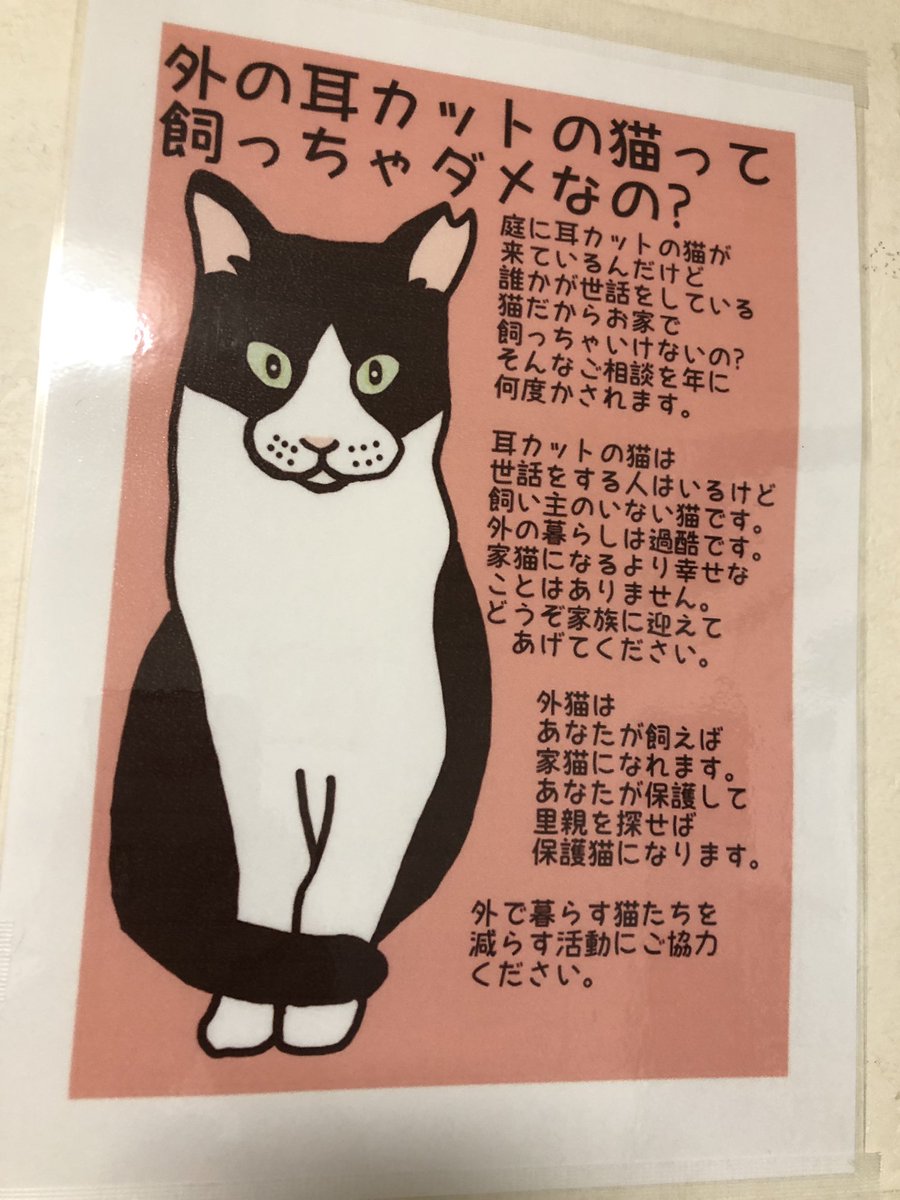 外の耳カットの猫って
飼っちゃダメなの?
庭に耳カットの猫が
来ているんだけど
誰かが世話をしている
猫だからお家で
飼っちゃいけないの?
そんなご相談を年に
何度かされます。
耳カットの猫は
世話をする人はいるけど
飼い主のいない猫です。
外の暮らしは過酷です。
家猫になるより幸せな
ことはありません。
どうぞ家族に迎えて
あげてください。
外猫は
あなたが飼えば
家猫になれます。
あなたが保護して
里親を探せば
保護猫になります。
外で暮らす猫たちを
減らす活動にご協力
ください。